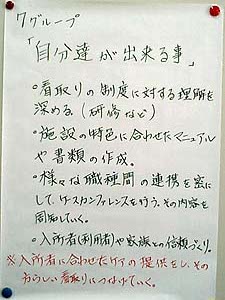 7グループ
「自分達が出来る事」
・看取りの制度に対する理解を
深める（研修など）
・施設の特色に合わせたマニュアル
や書類の作成。
・様々な職種間の連携を密に
して、ケースカンファレンスを行う。その内容を
周知していく。
・入所者（利用者）や家族との信頼づくり。
※入所者に合わせたケアの提供をし、その
方らしい看取りにつなげていく。